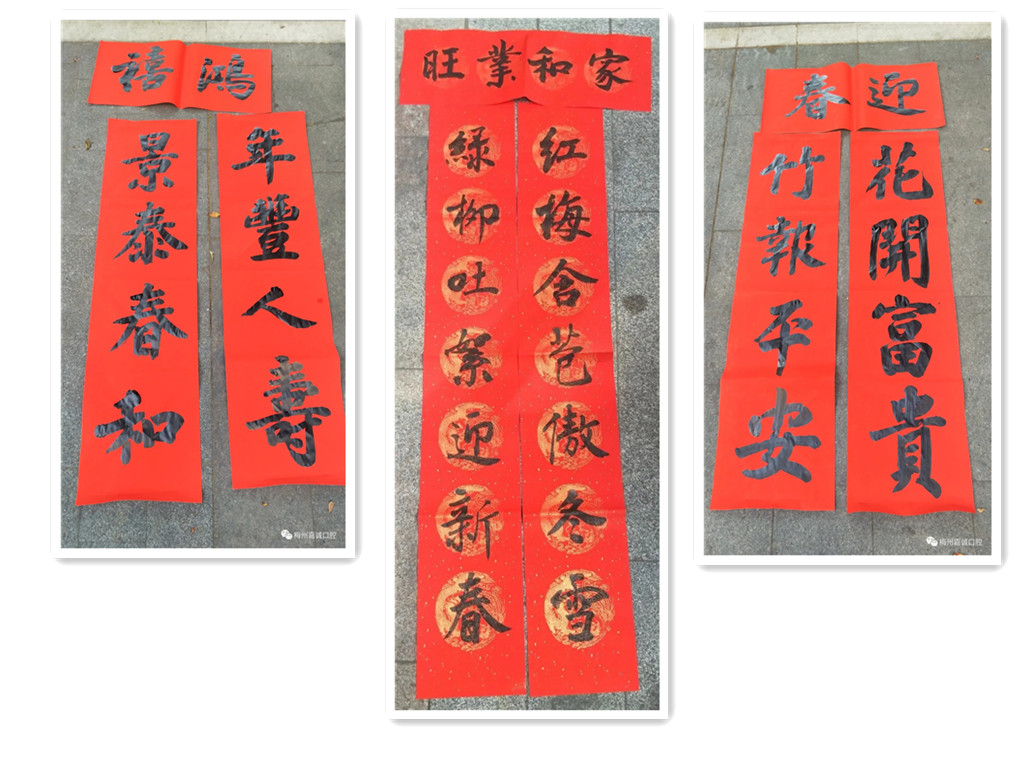 鴻禧
年豐人壽
景泰春和
梅州嘉诚口腔
家和業旺
红梅含苞傲冬雪
緑柳吐絮迎新春
迎春
花開富貴
竹報平安
梅州嘉诚口腔